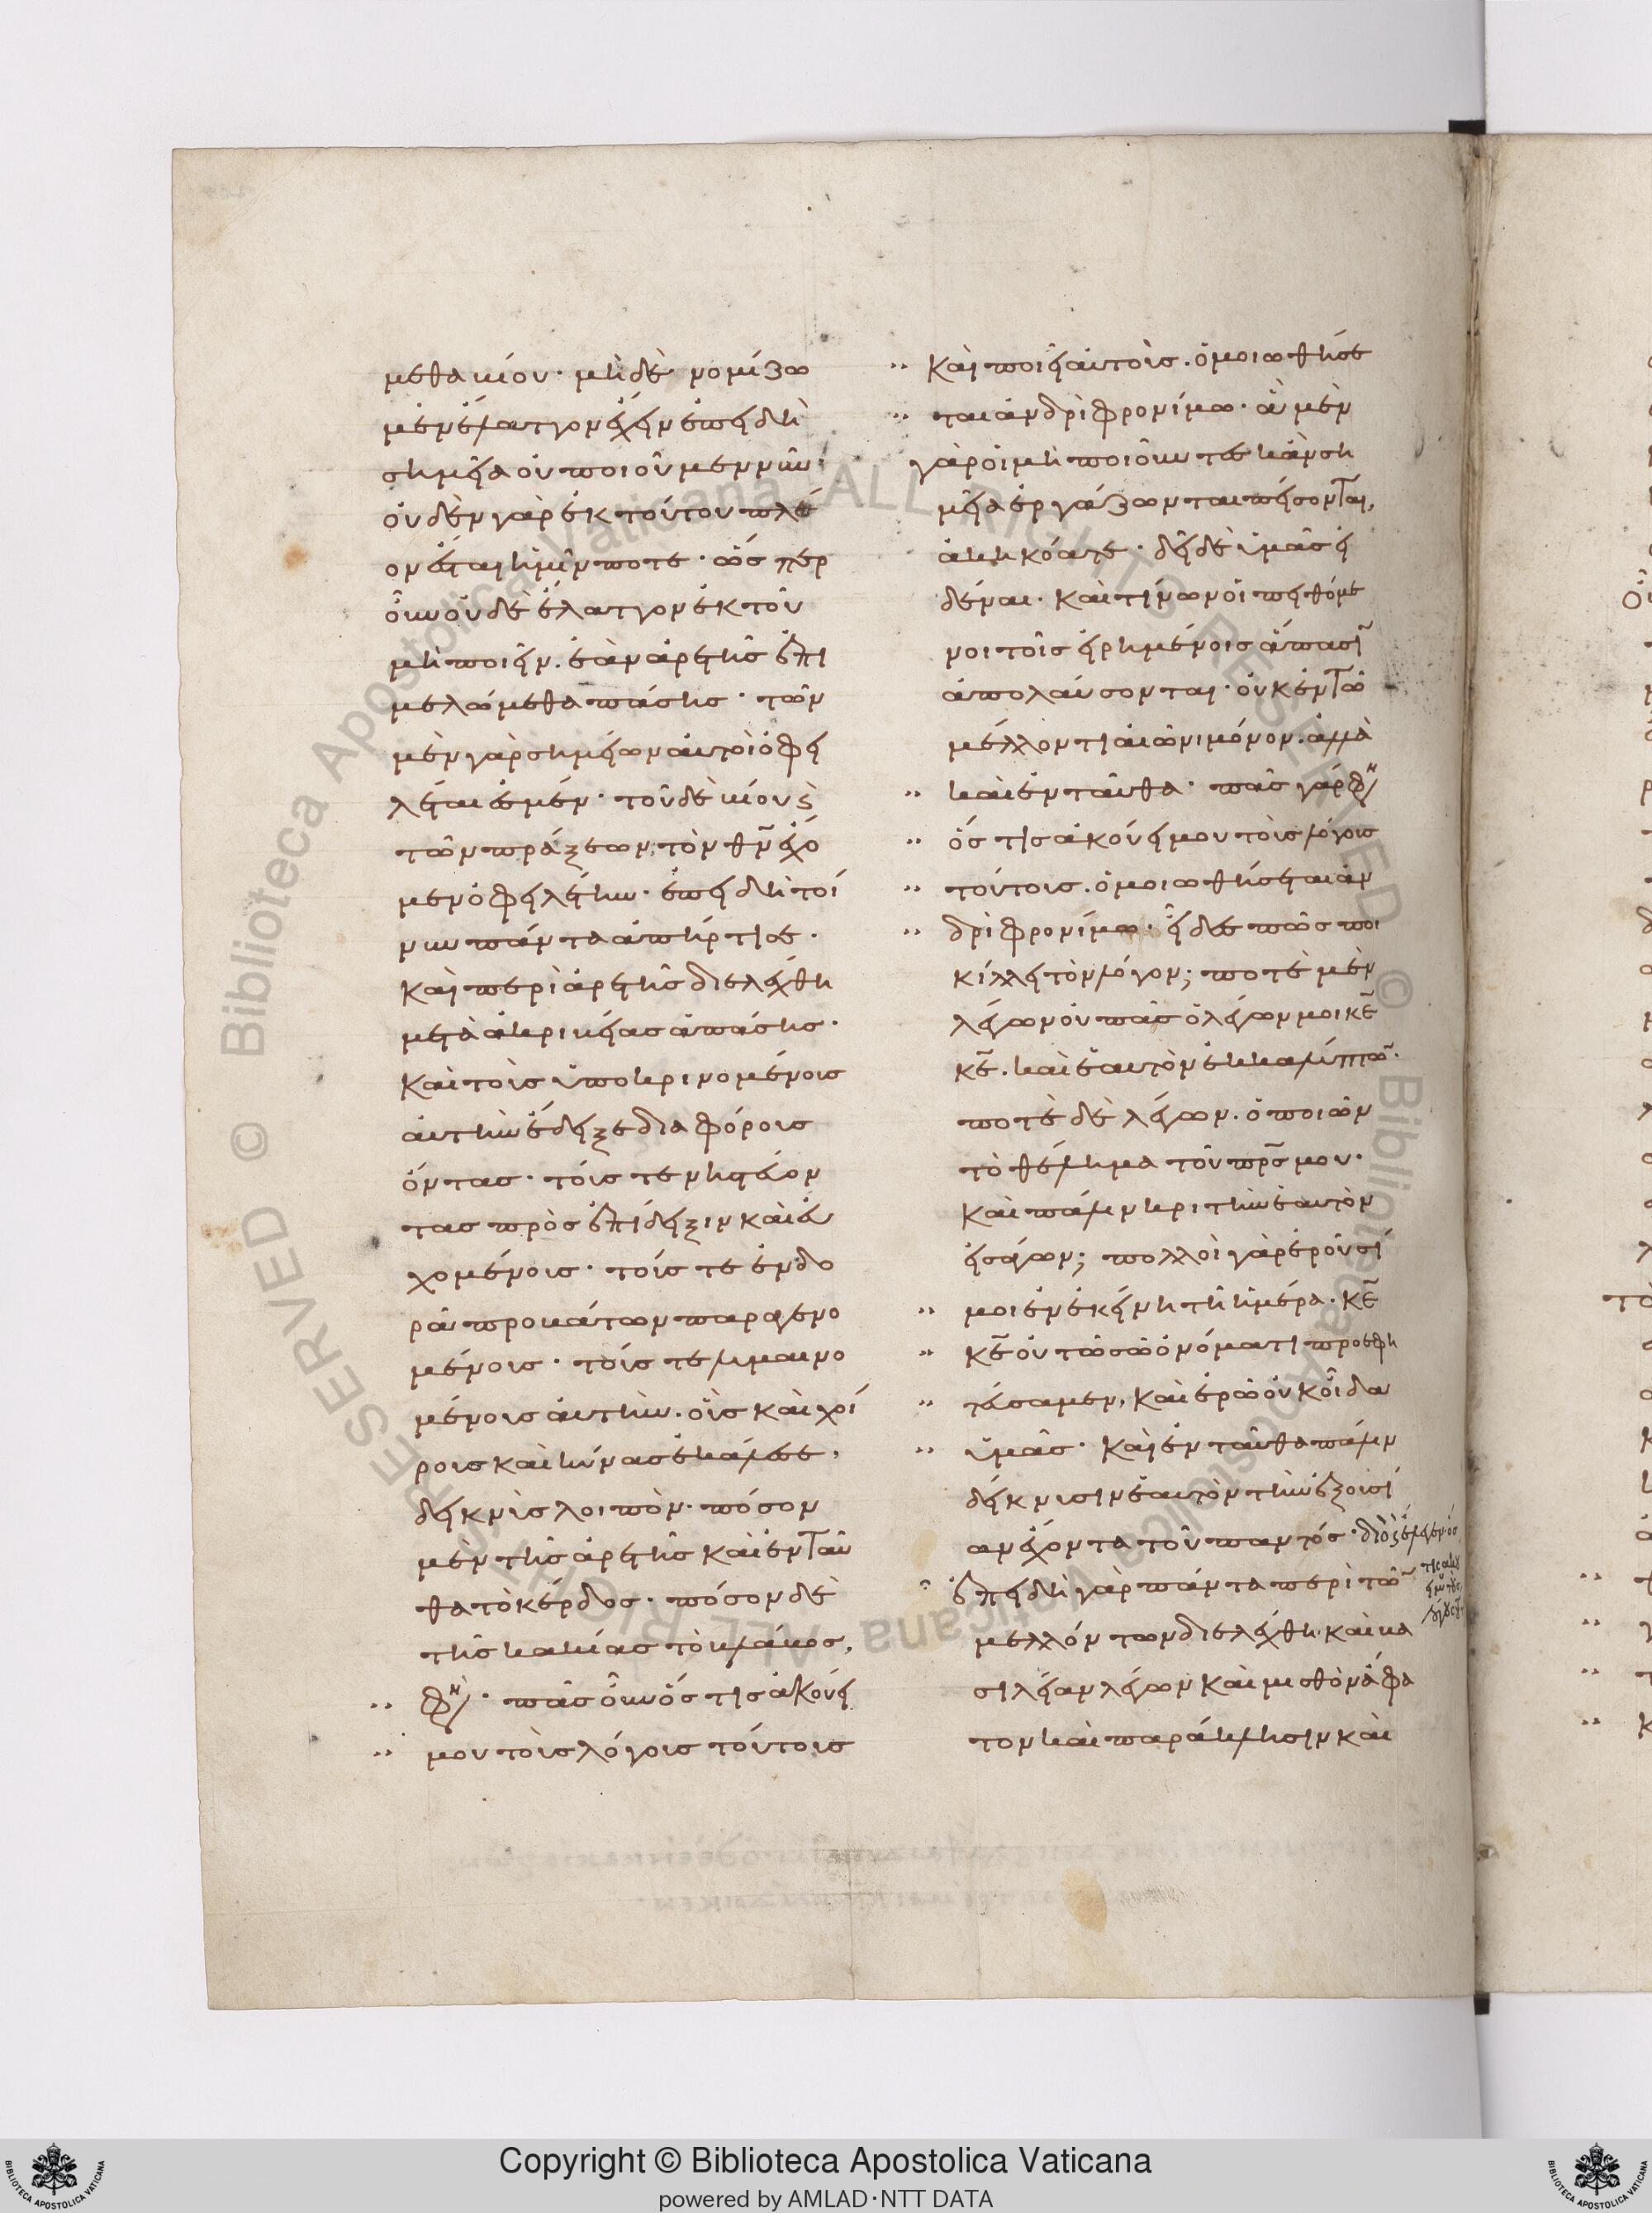 μεθα βίου· μὴ δὲ νομίζω
μεν ἔλαττον ἔχειν ἐπειδὴ
σημεῖα οὐ ποιοῦμεν νῦν·
οὐδὲν γὰρ ἐκ τούτου πλέ
ον ἔσται ἡμῖν ποτε· ὥσπερ
οὖν οὐδὲ ἔλαττον ἐκ τοῦ
μὴ ποιεῖν. ἐὰν ἀρετῆς ἐπι
μελώμεθα πάσης· τῶν
μὲν γὰρ σημείων αὐτοὶ ὀφεί
λεται ἐσμέν· τοῦ δὲ βίου ϗ
τῶν πράξεων, τὸν θν̅ ἔχο
μεν ὀφειλέτην· ἐπειδὴ τοί
νυν πάντα ἀπήρτισε·
καὶ περὶ ἀρετῆς διελέχθη
μετὰ ἀκριβείας ἁπάσης·
καὶ τοὺς ὑποκρινομένους
αὐτὴν ἔδειξε διαφόρους
ὄντας· τούς τε νηστεύον
τας πρὸς ἐπίδειξιν καὶ εὐ
χομένους· τούς τε ἐν δο
ρᾷ προβάτων παραγενο
μένους· τούς τε λυμαινο
μένους αὐτήν. οὓς καὶ χοί
ρους καὶ κύνας ἐκάλεσε,
δείκνυσι λοιπὸν· πόσον
μὲν τῆς ἀρετῆς καὶ ἐνταῦ
θα τὸ κέρδος· πόσον δὲ
τῆς κακίας τὸ βλάβος,
φη· πᾶς οὖν ὅστις ἀκούει
μου τοὺς λόγους τούτους
καὶ ποιεῖ αὐτοὺς. ὁμοιωθήσε
ται ἀνδρὶ φρονίμω· ἃ μὲν
γὰρ οἱ μὴ ποιοῦντες κἂν ση
μεῖα ἐργάζωνται πείσονται,
ἀκηκόατε· δεῖ δὲ ὑμᾶς εἰ
δέναι· καὶ τίνων οἱ πειθόμε
νοι τοῖς εἰρημένοις ἅπασι
ἀπολαύσονται· οὐκ ἐν τῶ
μέλλοντι αἰῶνι μόνον. ἀλλὰ
καὶ ἐνταῦθα· πᾶς γάρ φη
ὅστις ἀκούει μου τοὺς λόγους
τούτους. ὁμοιωθήσεται ἀν
δρὶ φρονίμω· εἶδες πῶς ποι
κίλλει τὸν λόγον; ποτὲ μὲν
λέγων οὐ πᾶς ὁ λέγων μοι κε̅
κε̅. καὶ ἑαυτὸν ἐκκαλύπτω̅·
ποτὲ δὲ λέγων. ὁ ποιῶν
τὸ θέλημα τοῦ πρ̅ς μου·
καὶ πάλιν κριτὴν ἑαυτὸν
εἰσάγων; πολλοὶ γὰρ ἐροῦσί
μοι ἐν ἐκείνη τῆ ἡμέρα. κε̅
κε̅ οὐ τῶ σῶ ὀνόματι προεφη
τεύσαμεν, καὶ ἐρῶ οὐκ οἶδα
ὑμᾶς· καὶ ἐνταῦθα πάλιν
δείκνυσιν ἑαυτὸν τὴν ἐξουσί
αν ἔχοντα τοῦ παντός· διὸ ϗ ἔλεγεν· ὅσ
τις ἀκού
ει μου τοὺς
λόγους
ἐπειδὴ γὰρ πάντα περὶ τῶ̅
μελλόντων διελέχθη· καὶ βα
σιλείαν λέγων καὶ μισθὸν ἄφα
τον καὶ παράκλησιν καὶ